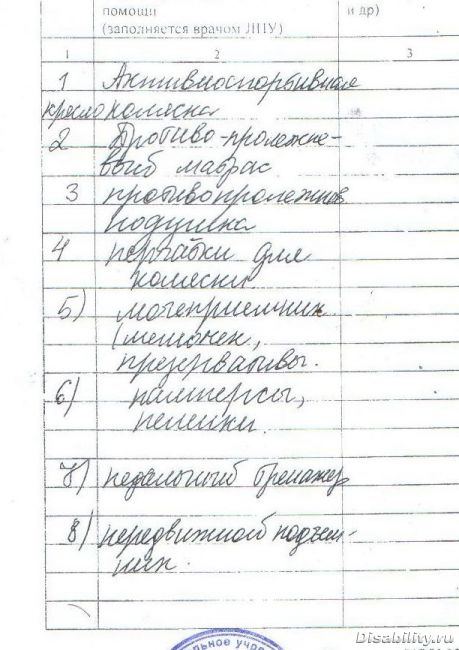 помощи
(заполняется врачом ЛПУ)
и др)
1 2 3
1 Активноспортивная
кресло коляска
2 Противо-пролежне-
вый матрас
3 противопролежнев
подушка
4 перчатки для
коляски
5) мочеприемник
(мешочек,
презервативы.
6) памперсы,
пеленки.
7) педальный тренажер
8) передвижной подъем-
ник.
льное учр
Disability.ru